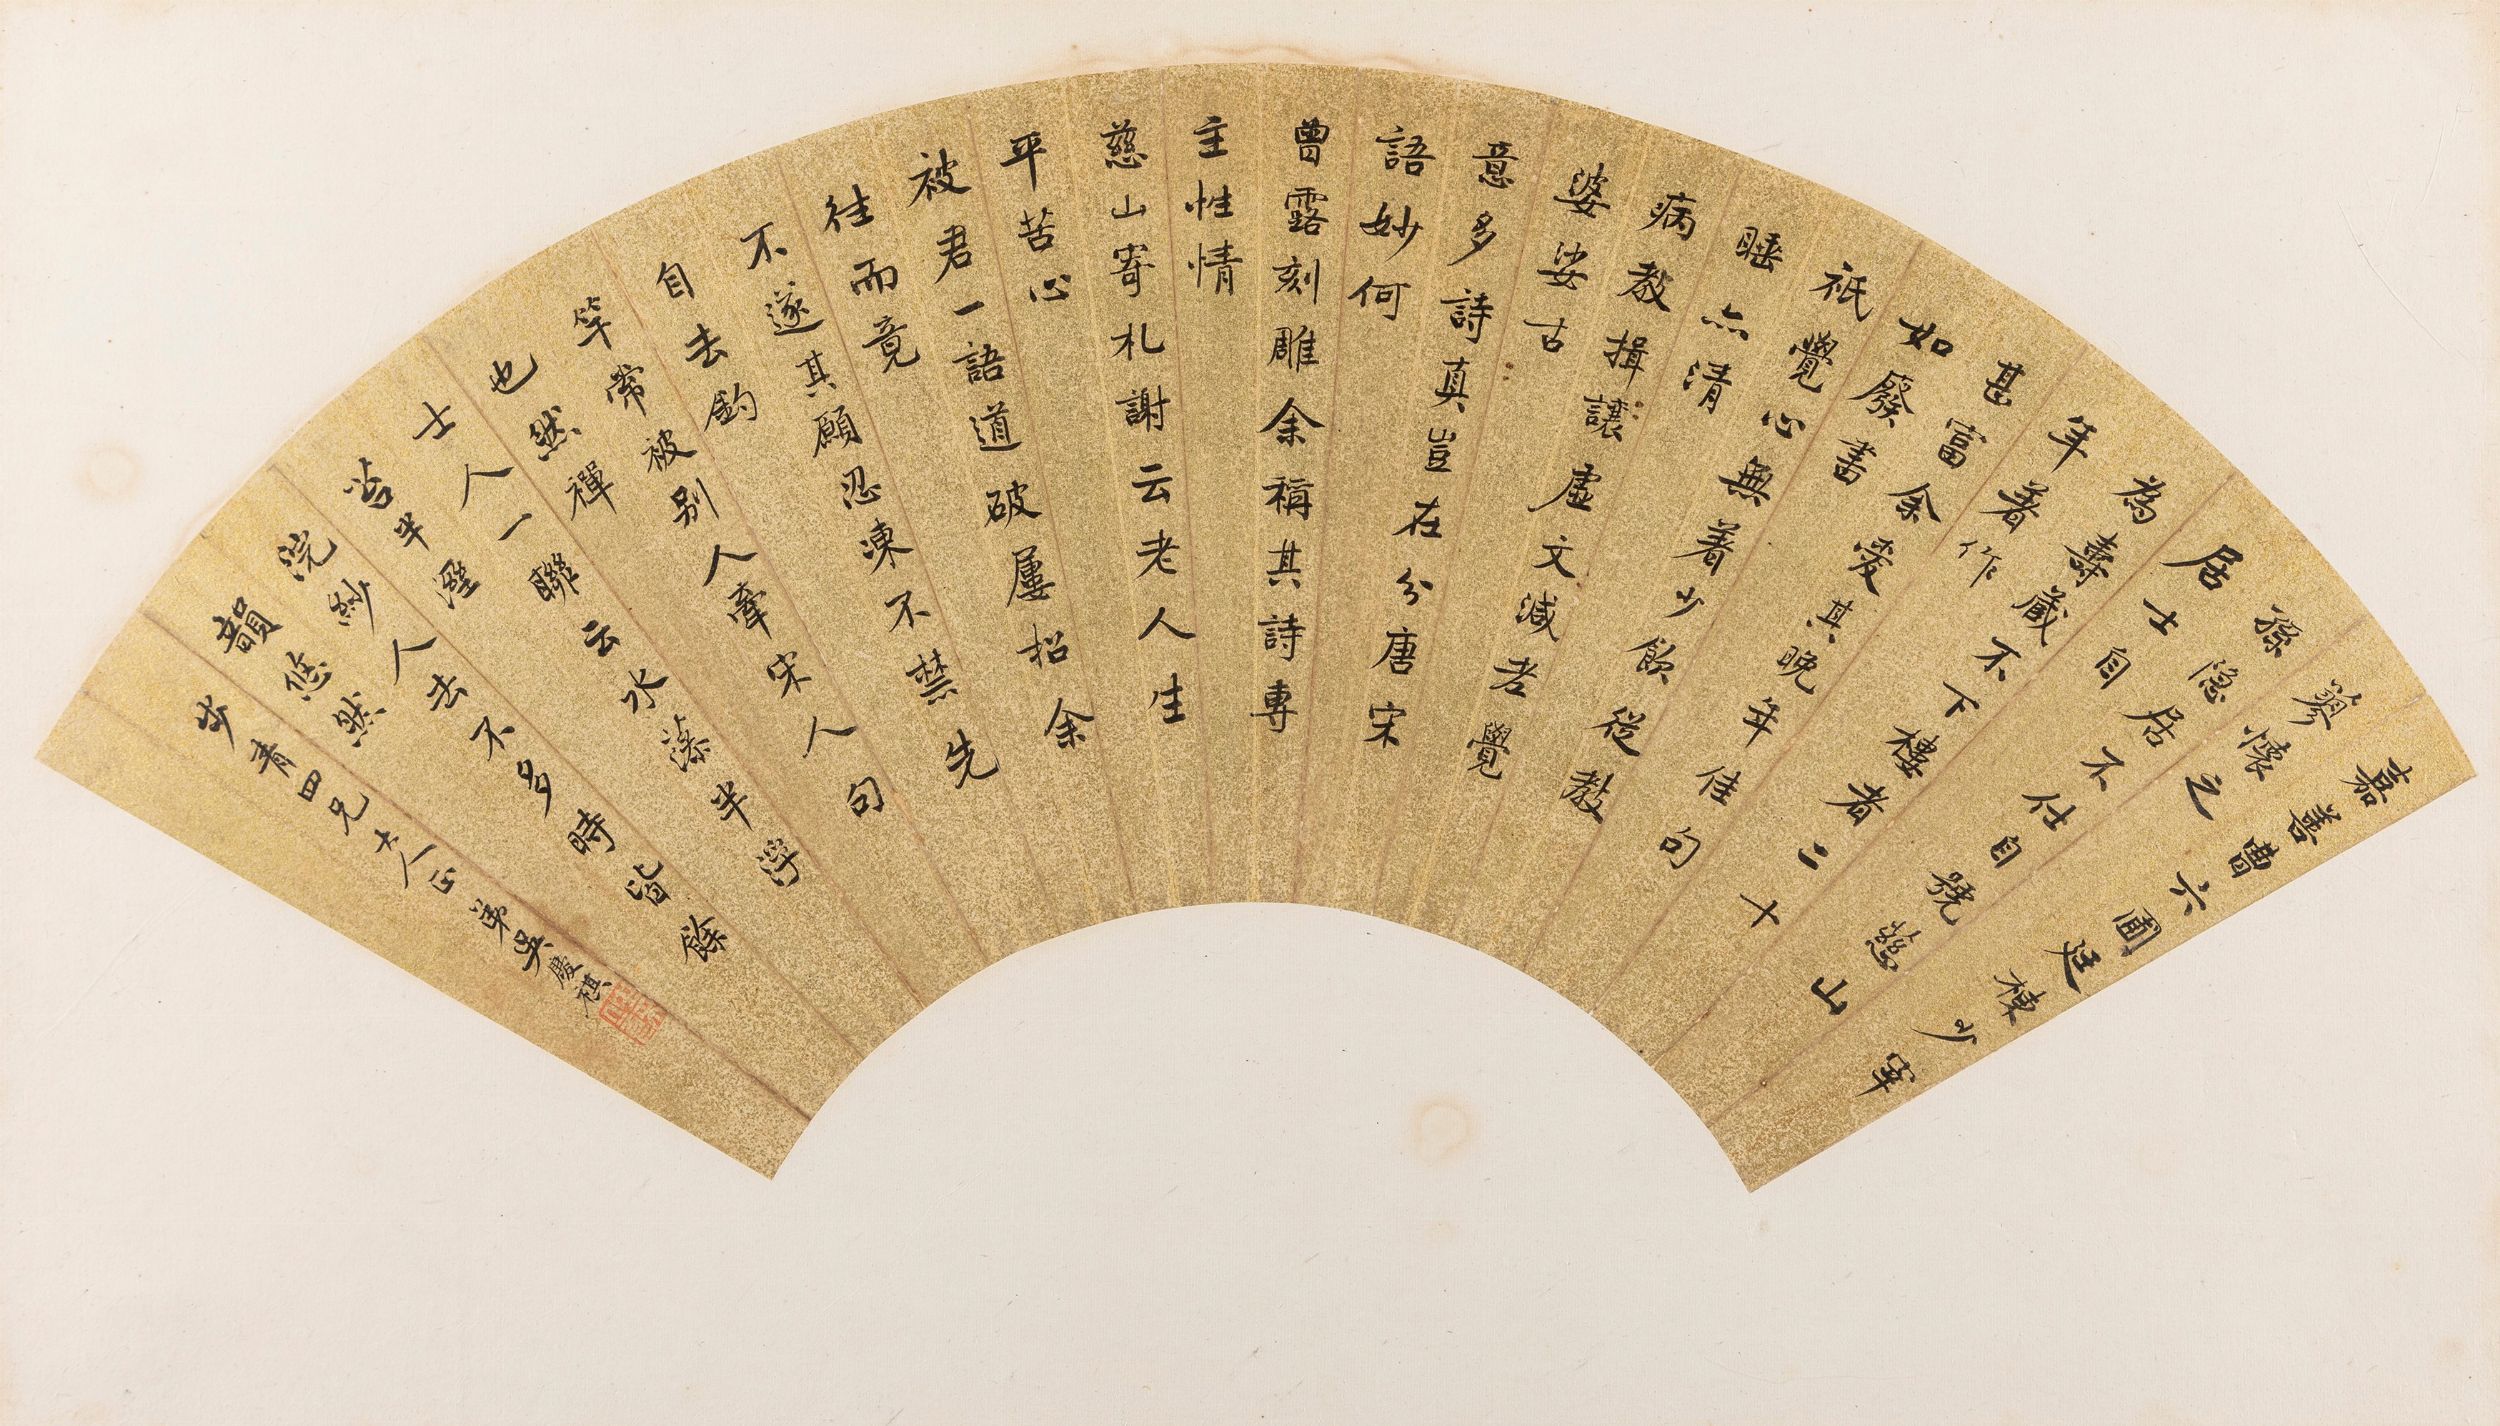 嘉善曹六圃廷棟少宰
蓼懷之
孫隱居不仕自號慈山
居士自
為壽藏不下樓者二十
年著作
甚富余愛其晚年佳句
如廢書
祇覺心無著少飲從教
睡亦清
病教揖讓虛文減老覺
婆娑古
意多詩真豈在分唐宋
語妙何
曾露刻雕余稱其詩專
主性情
慈山寄札謝云老人生
平苦心
被君一語道破屢招余
往而竟
不遂其願忍凍不禁先
自去釣
竿常被別人牽宋人句
也然禪
士人一聯云水藻半浮
苔半溼
浣紗人去不多時皆餘
韻悠然
步青四兄大人正弟吳慶祺